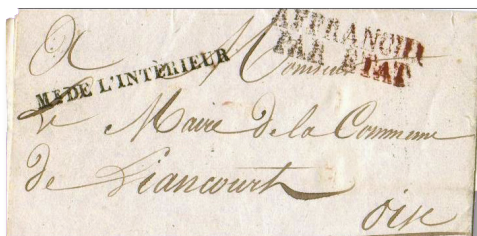 AFFRANCHI
PAR ETAT
A Monsieur
Mre DE L'INTÉRIEUR
Le Maire de la Commune
de Liancourt
Oise